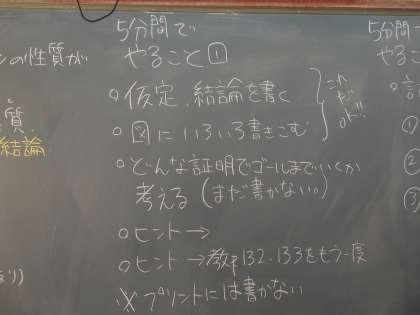 の性質が
質
結論
5分間で
やること①
○仮定、結論を書く
○図にいろいろ書きこむ
○どんな証明でゴールまでいくか
考える(まだ書かない。)
○ヒント→
○ヒント→教P132.133をもう一度
※プリントには書かない
これ
だ
け!!
5分間
やるこ
①
②
③